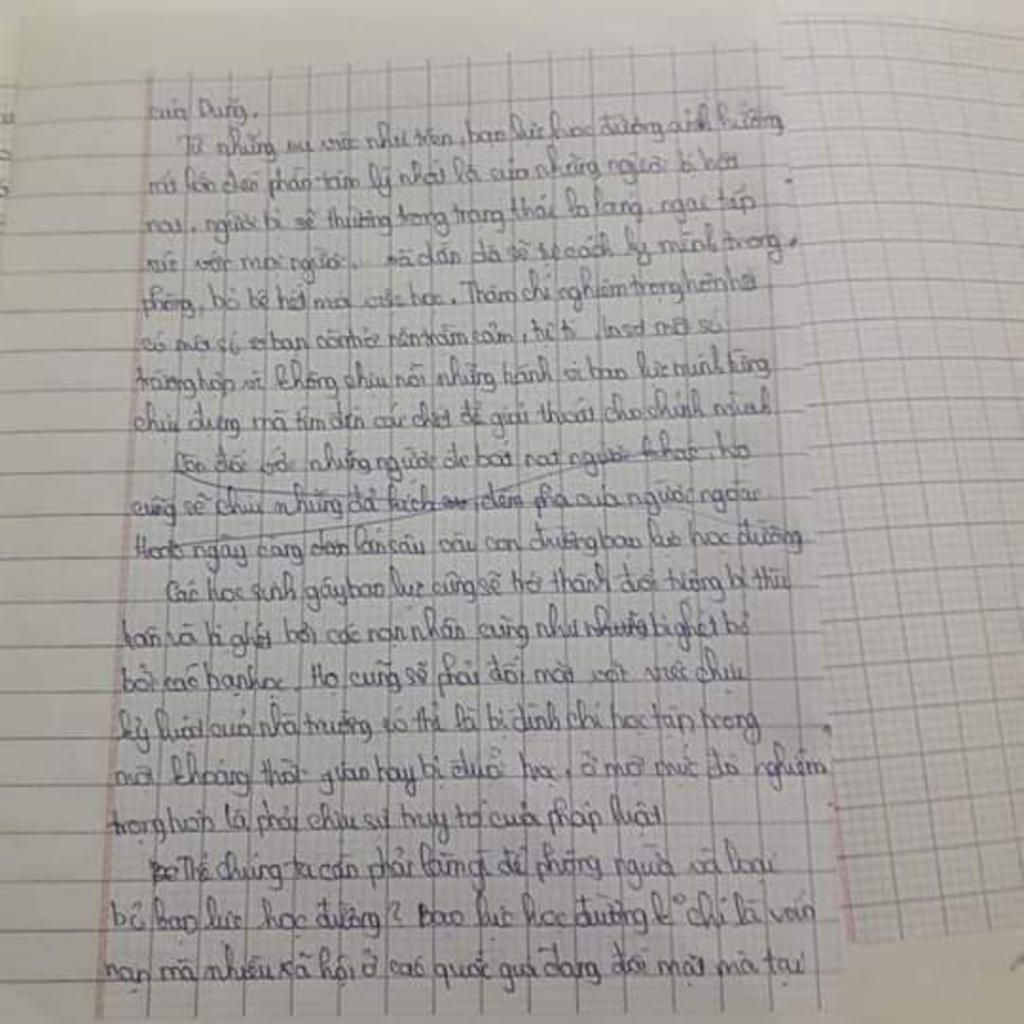 của Dũng.
Từ những vụ việc như trên, bạo lực học đường ảnh hưởng
rất lớn đến phần tâm lý nhất là của những người bị bắt
nạt, người bị sẽ thường trong trạng thái lo lắng, ngại tiếp
xúc với mọi người. và dần dà sẽ tự cách ly mình trong
phòng, bỏ bê hết mọi việc học. Thậm chí nghiêm trọng hơn
có một số bạn còn trầm cảm, tự ti, một số
trường hợp vì không chịu nổi những hành vi bạo lực mình từng
chịu đựng mà tìm đến cái chết để giải thoát cho chính mình
Còn đối với những người đi bắt nạt người khác, họ
cũng sẽ chịu những đả kích dèm pha của người ngoài
Hoặc ngày càng dấn lún sâu vào con đường bạo lực học đường
Các học sinh gây bạo lực cũng sẽ trở thành đối tượng bị thù
hằn và bị ghét bởi các nạn nhân cũng như bị ghét bỏ
bởi các bạn học. Họ cũng sẽ phải đối mặt với việc chịu
kỷ luật của nhà trường có thể là bị đình chỉ học tập trong
một khoảng thời gian hay bị đuổi học, ở một mức độ nghiêm
trọng hơn là phải chịu sự truy tố của pháp luật
Thế chúng ta cần phải làm gì để phòng ngừa và loại
bỏ bạo lực học đường? Bạo lực học đường k° chỉ là vấn
nạn mà nhiều xã hội ở các quốc gia đang đối mặt mà tại